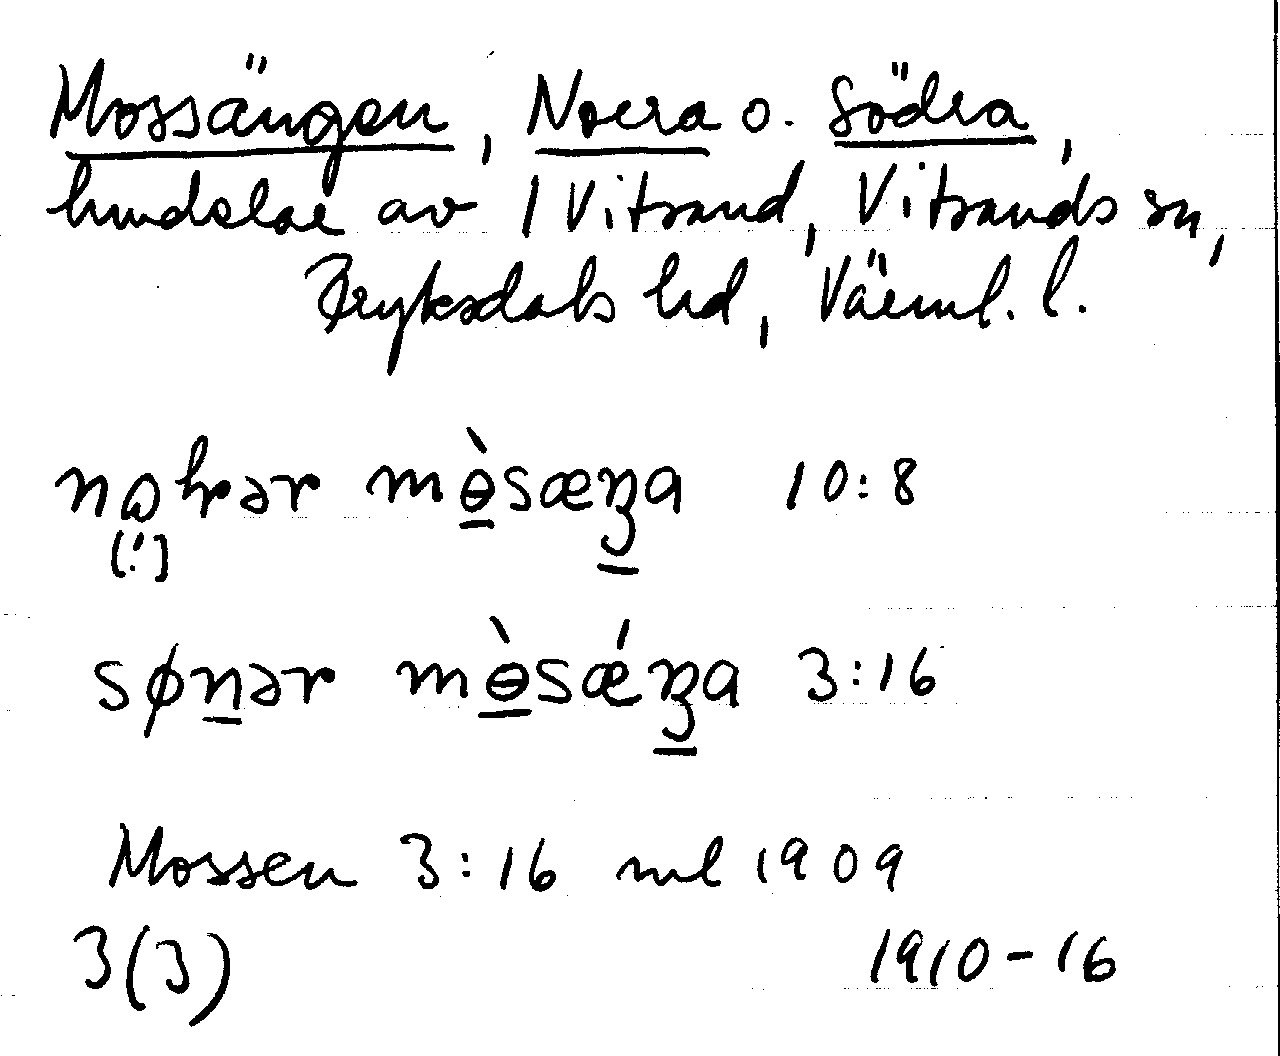 Mossängen, Norra o. Södra,
lundelar av 1 Vitsand, Vitsands sn,
Fryksdals hd, Värml. l.
mө̀sæŋa 10:8
[!]
sønər mө̀sǽŋa 3:16
Mossen 3:16 ml 1909
3(3) 1910-16